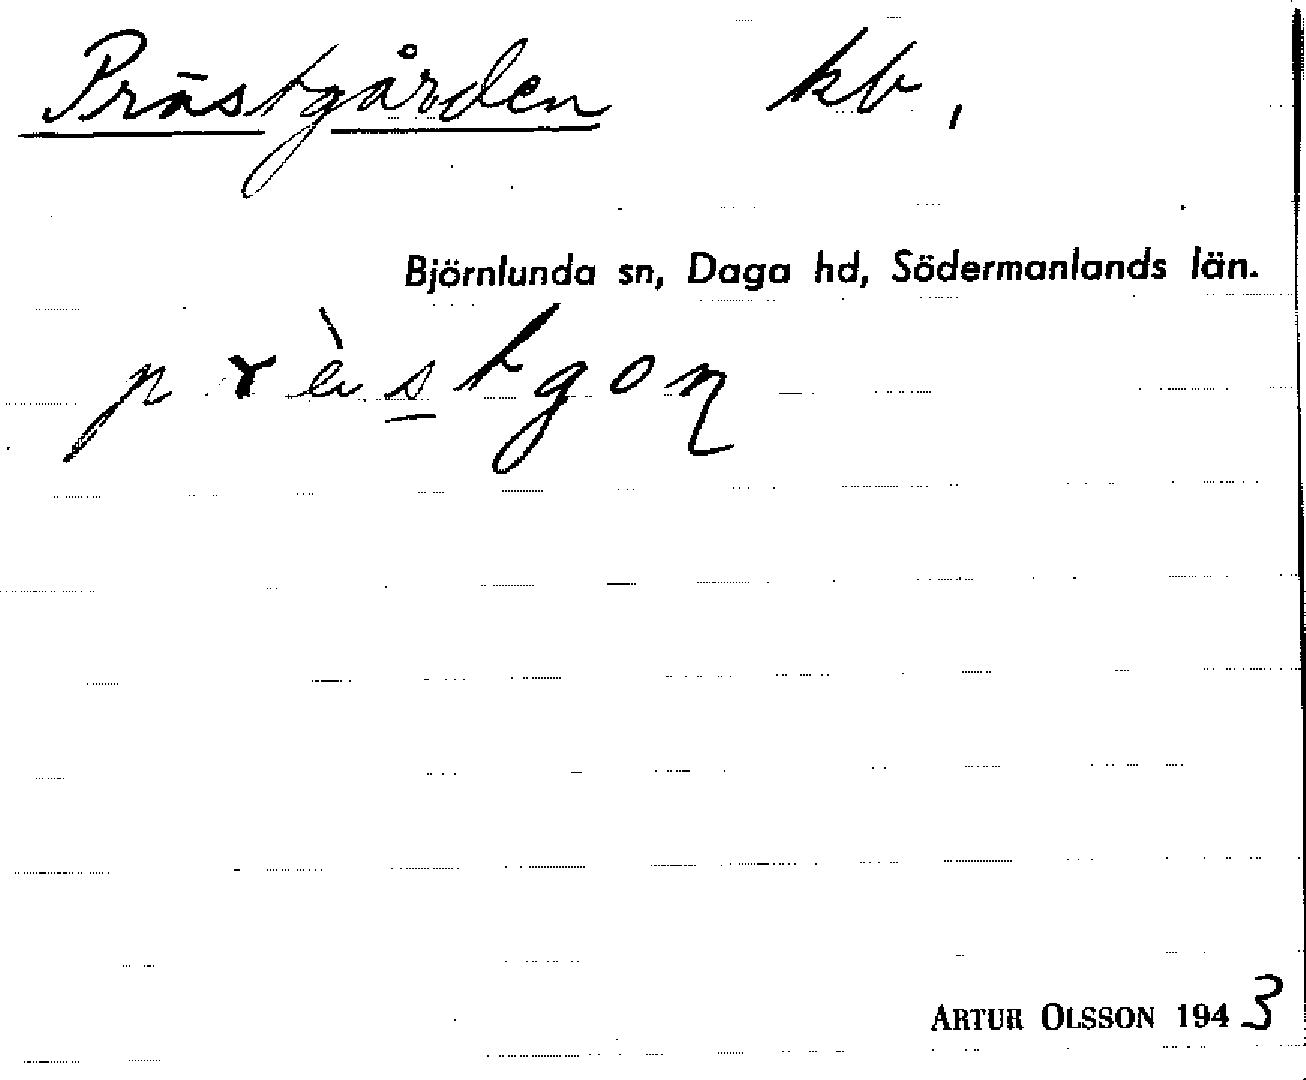 Prästgården kb.
Björnlunda sn, Daga hd, Södermanlands län.
ARTUR OLSSON 1943